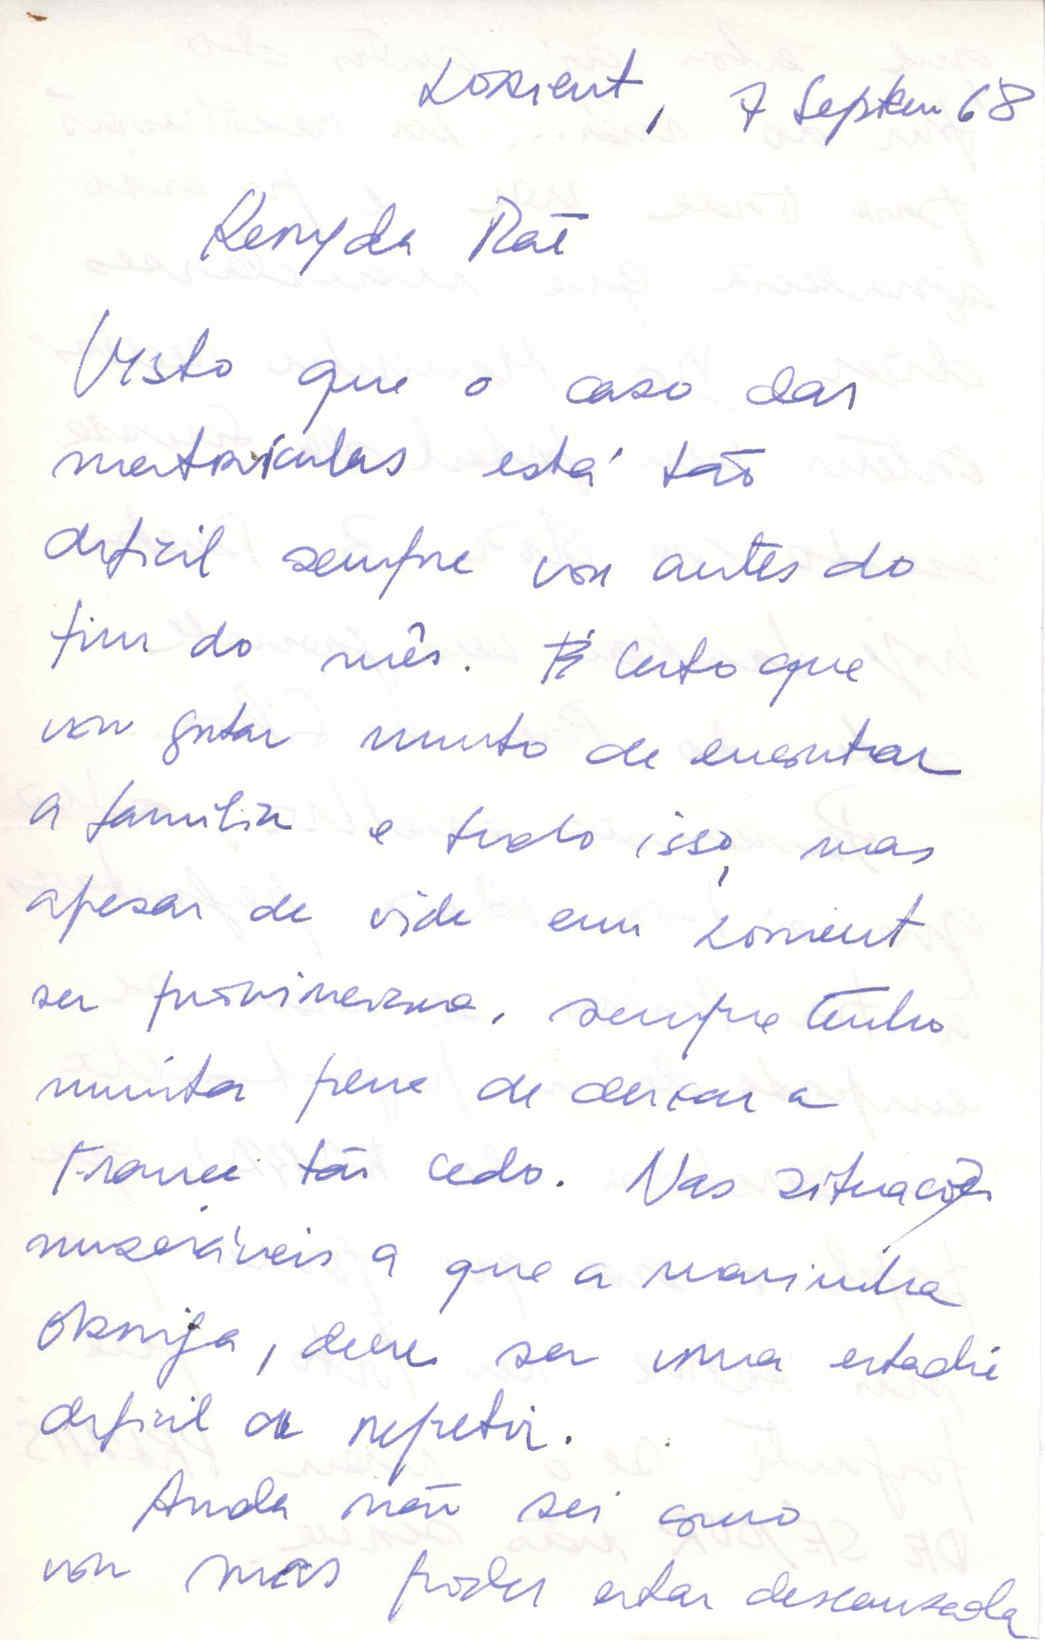 Lorient, 7 Septem 68
Visto que o caso das
matriculas está tão
dificil sempre vou antes do
fim do mês. É certo que
vou gostar muito de encontrar
a familia e tudo isso, mas
apesar de vida em Lorient
ser provinciana, sempre tenho
muita pena de deixar a
France tão cedo. Nas situações
miseráveis a que a marinha
obriga, deve ser uma estadia
dificil de repetir.
Ainda não sei como
vou mas podes estar descansada